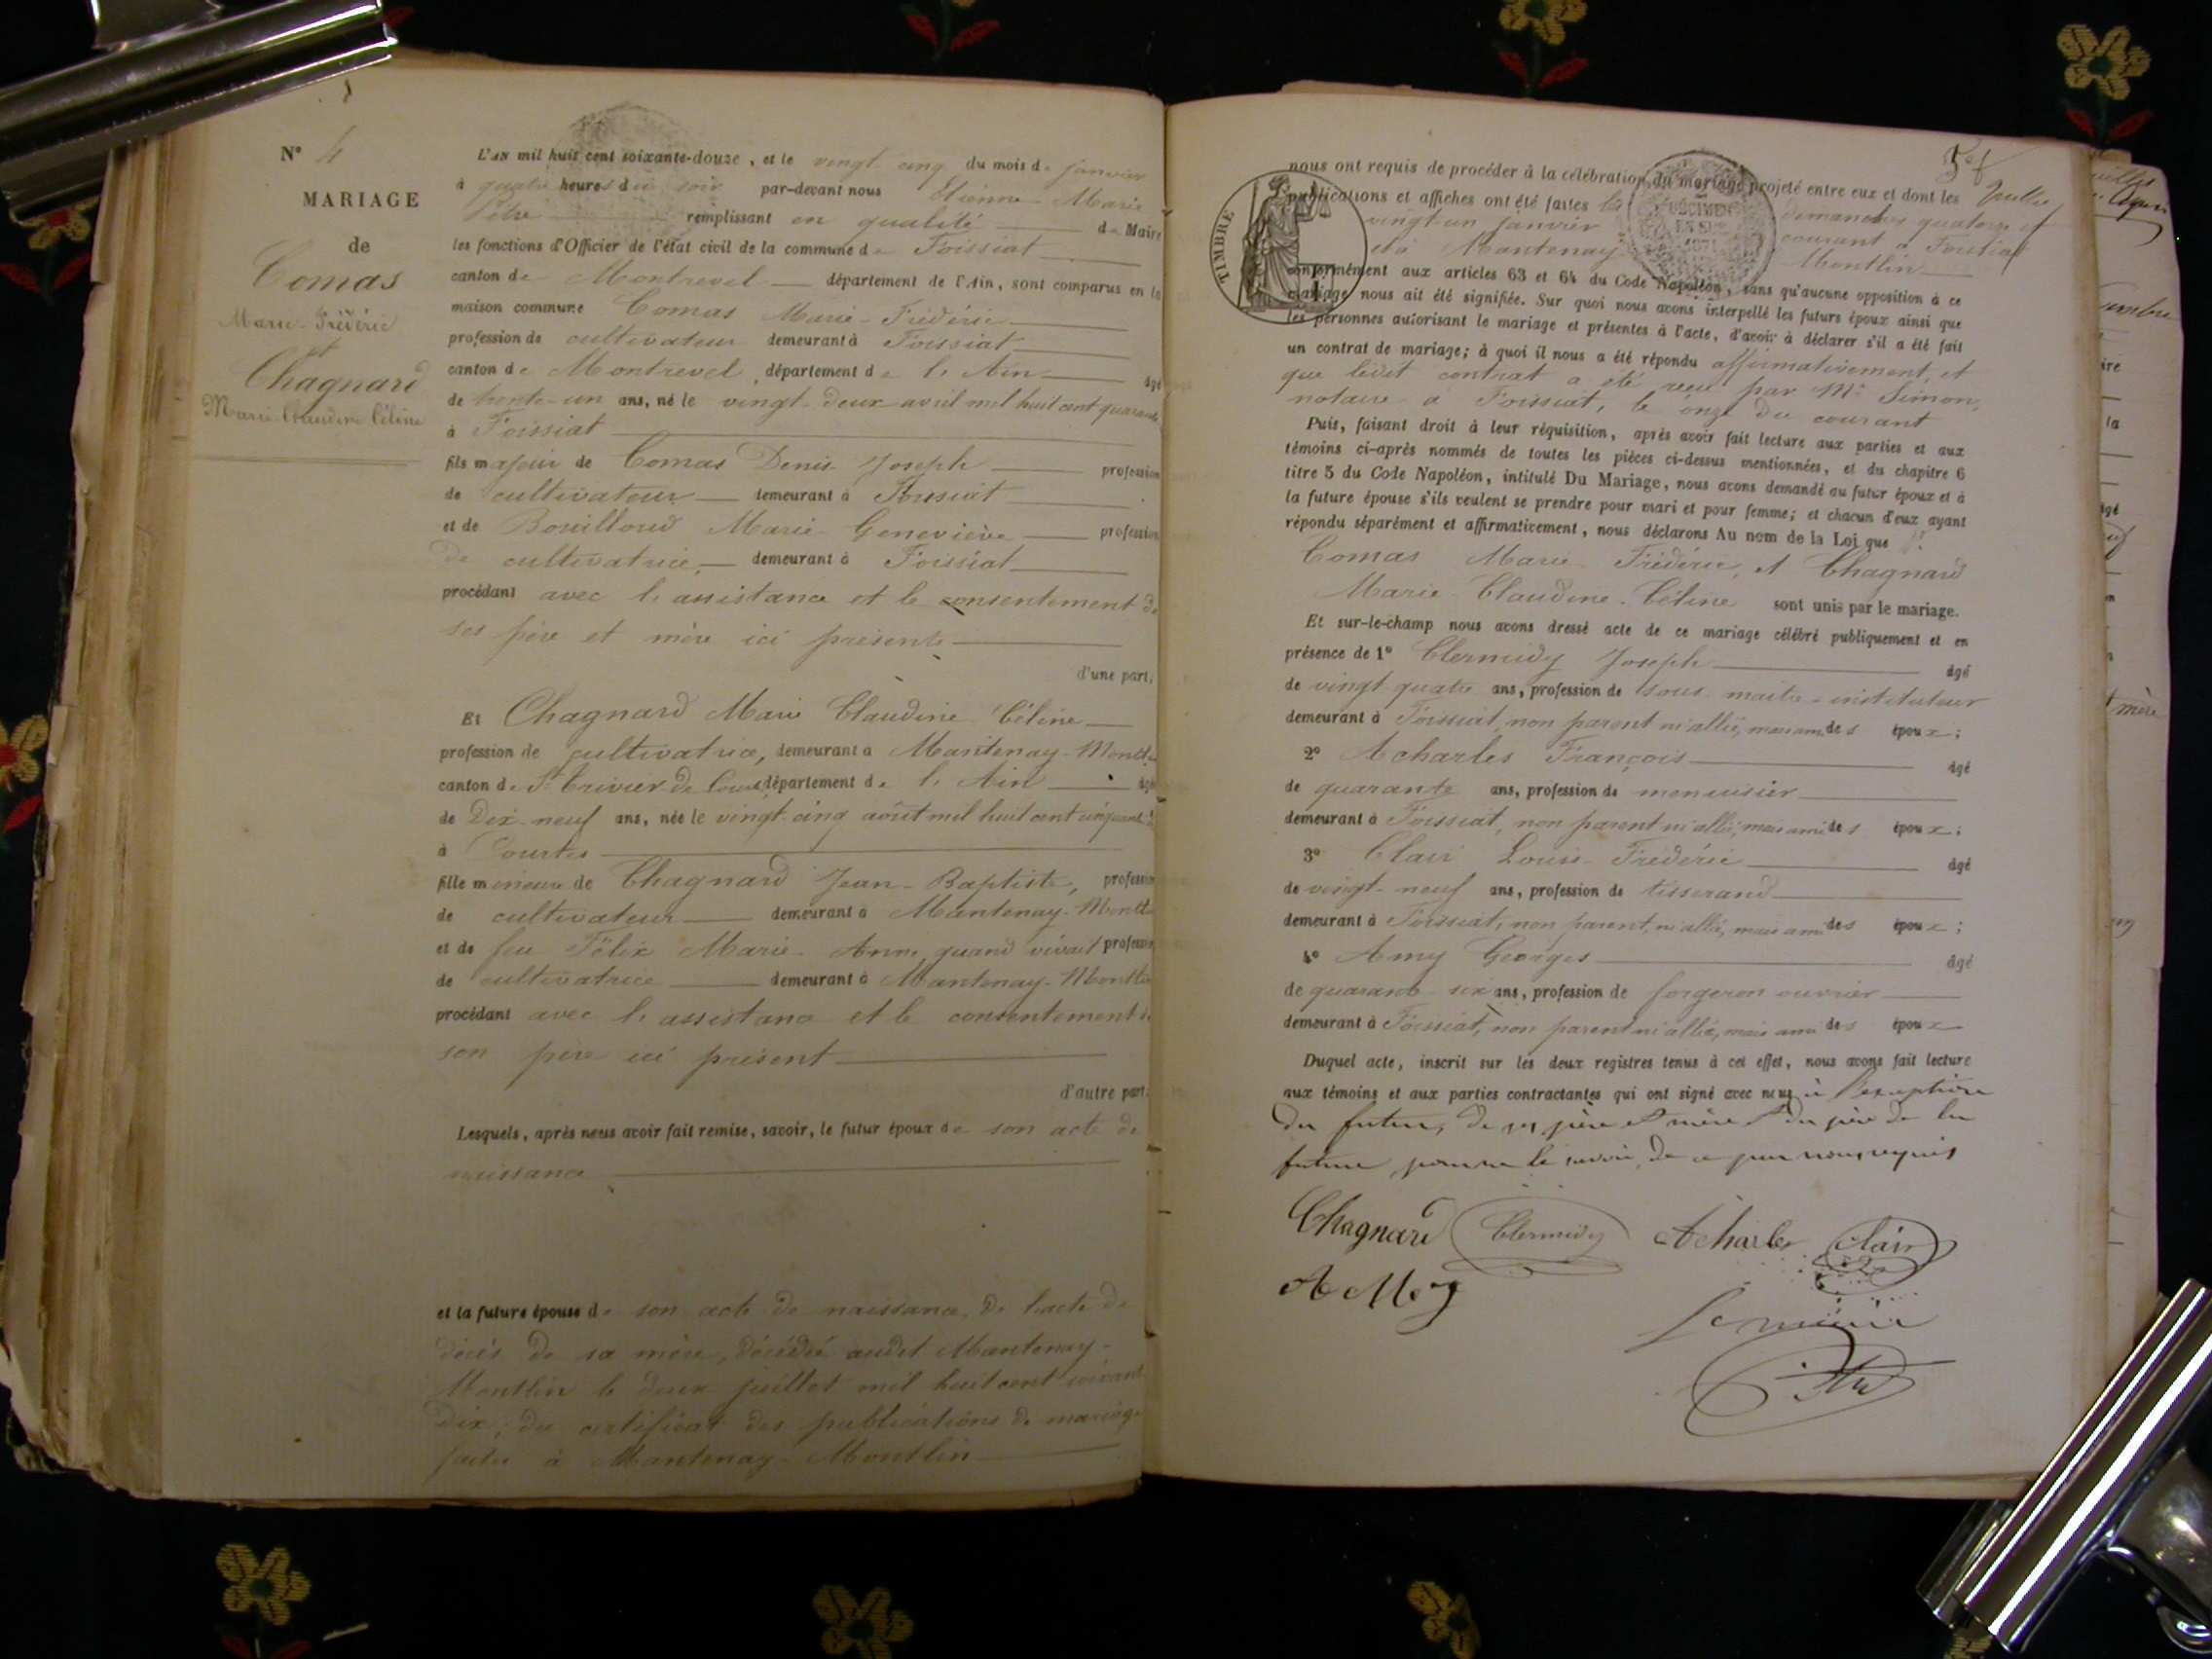 N° 4
MARIAGE
de
Comas
Marie-Frédéric
et
Chagnard
Marie Claudine Céline
L'AN mil huit cent soixante-douze, et le vingt cinq du mois de janvier
à quatre heures du soir par-devant nous Etienne-Marie
remplissant en qualité de Maire
les fonctions d'Officier de l'état civil de la commune de Foissiat
canton de Montrevel département de l'Ain, sont comparus en la
maison commune Comas Marie-Frédéric
profession de cultivateur demeurant à Foissiat
canton de Montrevel, département de l'Ain âgé
de trente-un ans, né le vingt-deux avril mil huit cent quarante
à Foissiat
fils majeur de Comas Denis Joseph profession
de cultivateur demeurant à Foissiat
et de Bouilloud Marie-Geneviève profession
de cultivatrice, demeurant à Foissiat
procédant avec l'assistance et le consentement de
ses père et mère ici présents
d'une part;
Et Chagnard Marie Claudine Céline
profession de cultivatrice, demeurant à Mantenay-Montlin
canton de St Trivier de Courtes département de l'Ain âgé
de Dix-neuf ans, née le vingt-cinq août mil huit cent cinquante
à Courtes
fille mineure de Chagnard Jean-Baptiste, profession
de cultivateur demeurant à Mantenay-Montlin
et de feu Félix Marie-Anne, quand vivait profession
de cultivatrice demeurant à Mantenay-Montlin
procédant avec l'assistance et le consentement de
son père ici présent
d'autre part;
Lesquels, après nous avoir fait remise, savoir, le futur époux de son acte de
naissance
et la future épouse de son acte de naissance, de l'acte de
décès de sa mère, décédée audit Mantenay-
Montlin le deux juillet mil huit cent soixante
Dix; du certificat des publications de mariage
faites à Mantenay-Montlin
nous ont requis de procéder à la célébration du mariage projeté entre eux et dont les
publications et affiches ont été faites les dimanches quatorze et
vingt-un janvier courant à Foissiat
et à Mantenay Montlin
conformément aux articles 63 et 64 du Code Napoléon, sans qu'aucune opposition à ce
mariage nous ait été signifiée. Sur quoi nous avons interpellé les futurs époux ainsi que
les personnes autorisant le mariage et présentes à l'acte, d'avoir à déclarer s'il a été fait
un contrat de mariage; à quoi il nous a été répondu affirmativement, et
que ledit contrat a été reçu par Me Simon,
notaire à Foissiat, le onze du courant
Puis, faisant droit à leur réquisition, après avoir fait lecture aux parties et aux
témoins ci-après nommés de toutes les pièces ci-dessus mentionnées, et du chapitre 6
titre 5 du Code Napoléon, intitulé Du Mariage, nous avons demandé au futur époux et à
la future épouse s'ils veulent se prendre pour mari et pour femme; et chacun d'eux ayant
répondu séparément et affirmativement, nous déclarons Au nom de la Loi que
Comas Marie-Frédéric, et Chagnard
Marie-Claudine-Céline sont unis par le mariage.
Et sur-le-champ nous avons dressé acte de ce mariage célébré publiquement et en
présence de 1° Clermidy Joseph âgé
de vingt-quatre ans, profession de sous-maître-instituteur
demeurant à Foissiat, non parent ni allié, mais ami des époux;
2° Acharles François âgé
de quarante ans, profession de menuisier
demeurant à Foissiat, non parent ni allié, mais ami des époux;
3° Clair Louis-Frédéric âgé
de vingt-neuf ans, profession de tisserand
demeurant à Foissiat, non parent, ni allié, mais ami des époux;
4° Amy Georges âgé
de quarante-six ans, profession de forgeron ouvrier
demeurant à Foissiat, non parent ni allié, mais ami des époux
Duquel acte, inscrit sur les deux registres tenus à cet effet, nous avons fait lecture
aux témoins et aux parties contractantes qui ont signé avec nous à l'exception
du futur, de ses père et mère et du père de la
future, pour ne le savoir, de ce par nous requis
Chagnard Clermidy Acharles Clair
AMey
TIMBRE